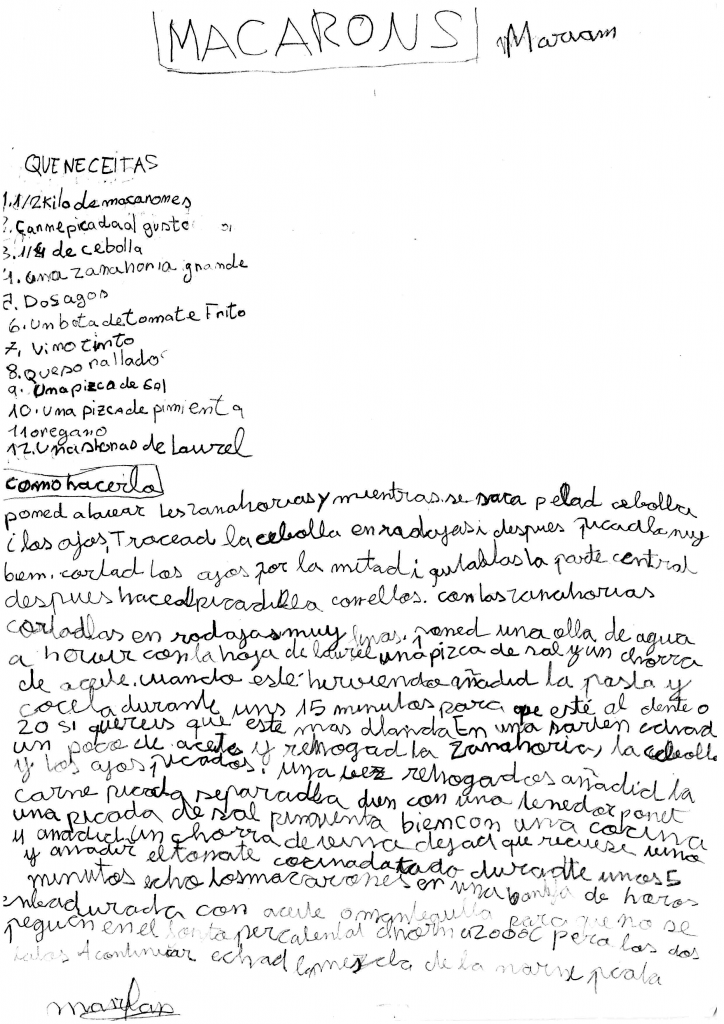 MACARONS Maryam
QUE NECEITAS
1. 1/2 Kilo de macarrones
2. Carne picada al gusto
3. 1/4 de cebolla
4. una zanahoria grande
5. Dos agos
6. Un bota de tomate Frito
7. Vino tinto
8. queso rallado
9. Una pizca de sal
10. una pizca de pimienta
11 oregano
12. de Laurel
como hacerlo
poned a lavar las zanahorias y mientras se pelad cebolla
i los ajos, Trocead la cebolla en rodajas i despues picadla muy
bien. cortad los ajos por la metad i la parte central
despues haced con ellos. con las zanahorias
cortadlas en rodajas muy finas. poned una olla de agua
a hervir con la hoja de laurel una pizca de sal y un chorra
de aceite. cuando esté herviendo añadid la pasta y
cocela durante uns 15 minutos para que esté al dente o
20 si quereis que este mas En una sarten echad
un poco de aceite y rehogad la zanahoria, la cebolla
y los ajos picados. una vez rehogados añadid la
carne picada con una tenedor
una picada de sal bien con una
y añadid un chorra de dejad que
y añadir el tomate durante unos 5
minutos los macarrones en una de
con aceite o mantequilla para que no se
peguen en el los dos
A continuar echad la mezcla de la